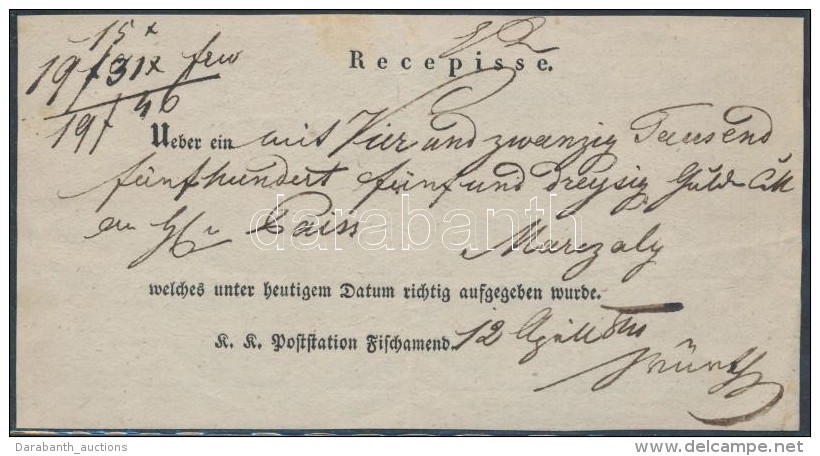 15 x
19 f 31 x
19 f 46
Recepisse.
Ueber ein mit Vier und zwanzig Tausend
fünfhundert fünf und dreysig Guld CM
an H Paiss Marczaly
welches unter heutigem Datum richtig aufgegeben wurde.
K. K. Poststation Fischamend. 12 April
darabanth
Darabanth_auctions
http://www.delcampe.net